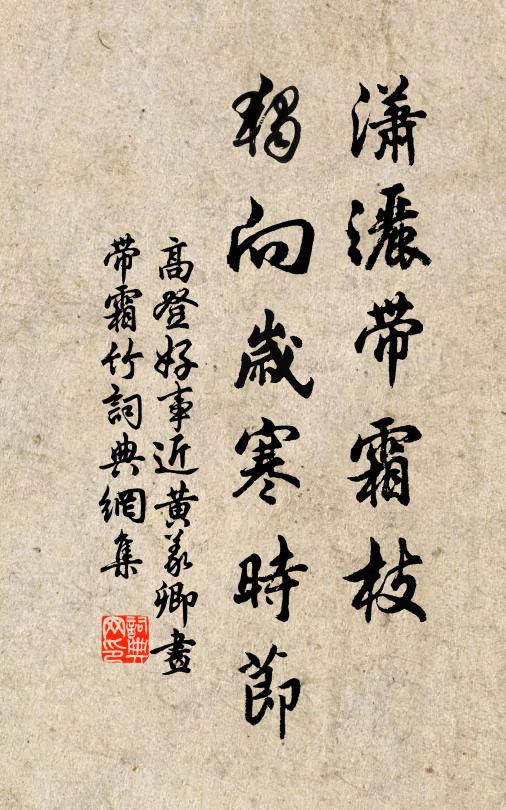 瀟灑帶霜枝
獨向歲寒時節
高登好事近黃義卿畫
帶霜竹詞典網集
詞典網印